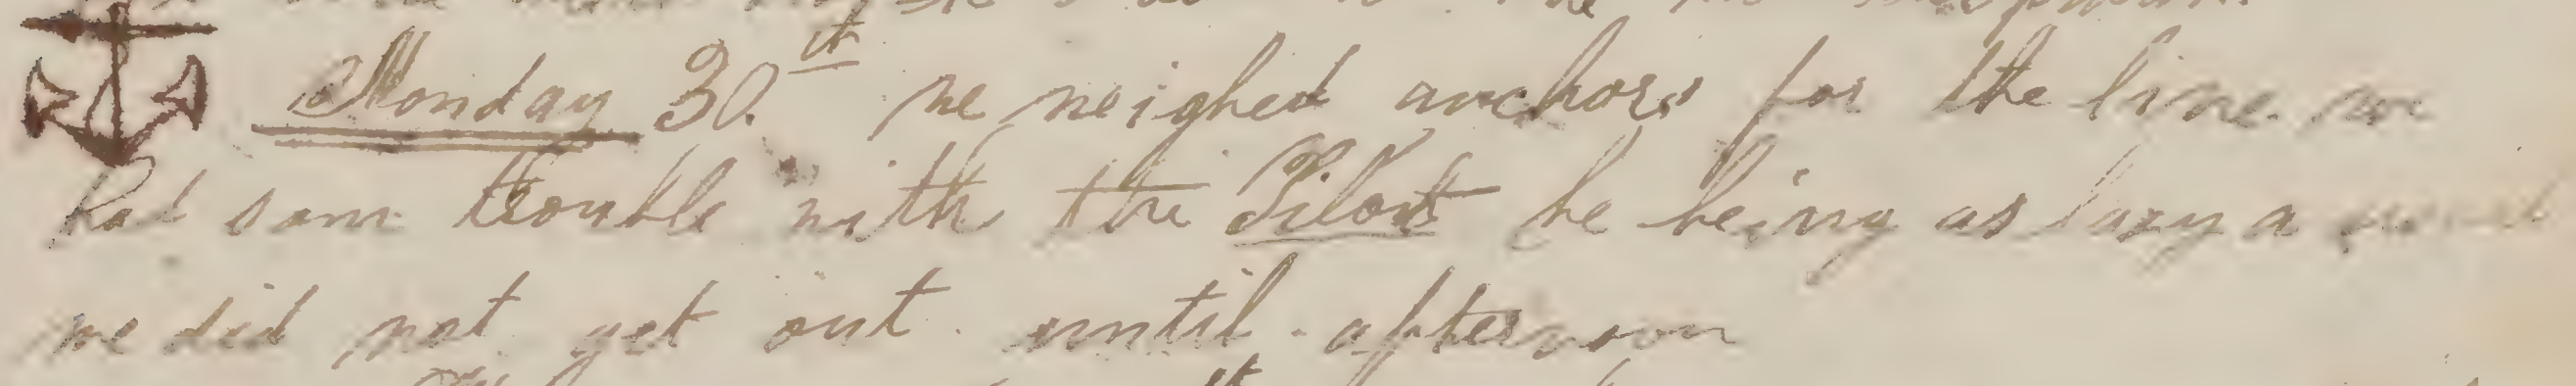 Monday 30.th we weighed anchors for the line. we
had som trouble with the Pilot he being as lazy a
we did not get out until afternoon